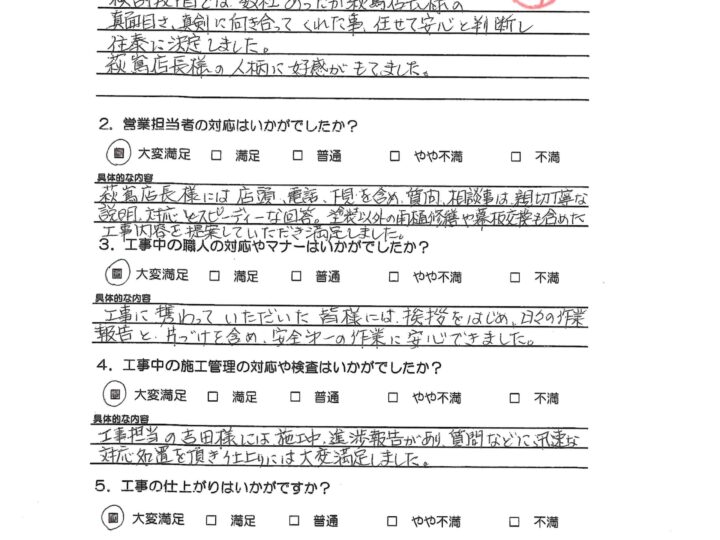 検討段階では 数社 あったが萩嶌店長様の
真面目さ、真剣に向き合ってくれた事、任せて安心と判断し
住泰に決定しました。
萩嶌店長様の人柄に好感がもてました。
2．営業担当者の対応はいかがでしたか？
大変満足 □ 満足 □ 普通 □ やや不満 □ 不満
具体的な内容
萩嶌店長様には店頭、電話、下見を含め、質問、相談事は、親切丁寧な
説明、対応とスピーディーな回答。塗装以外の雨樋修繕や幕板交換も含めた
工事内容を提案していただき満足しました。
3．工事中の職人の対応やマナーはいかがでしたか？
大変満足 □ 満足 □ 普通 □ やや不満 □ 不満
具体的な内容
工事に携わっていただいた皆様には、挨拶をはじめ、日々の作業
報告と、片づけを含め、安全第一の作業に安心できました。
4．工事中の施工管理の対応や検査はいかがでしたか？
大変満足 □ 満足 □ 普通 □ やや不満 □ 不満
具体的な内容
工事担当の吉田様には施工中、進渉報告があり、質問などに迅速な
対応処置を頂き仕上りには大変満足しました。
5．工事の仕上がりはいかがですか？
大変満足 □ 満足 □ 普通 □ やや不満 □ 不満